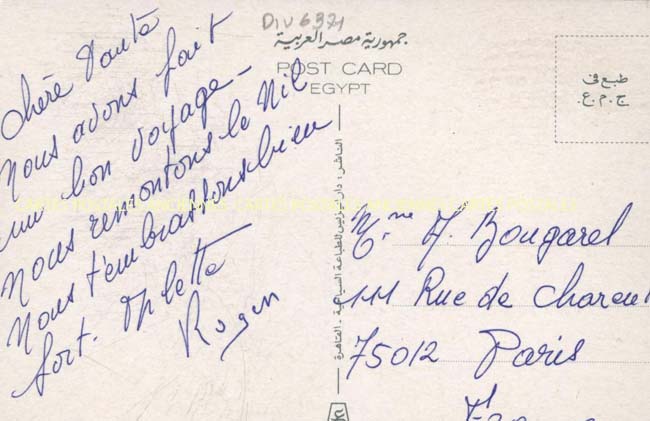 Div 6321
جمهورية مصر العربية
POST CARD
EGYPT
طبع في
ج.م.ع.
chère Tante
Nous avons fait
un bon voyage -
Nous remontons le Nil
Nous t'embrassons bien
fort.
Roger
الناشر: دار
للطباعة السياحية - القاهرة
Mme A. Bougarel
111 Rue de Charent
75012 Paris